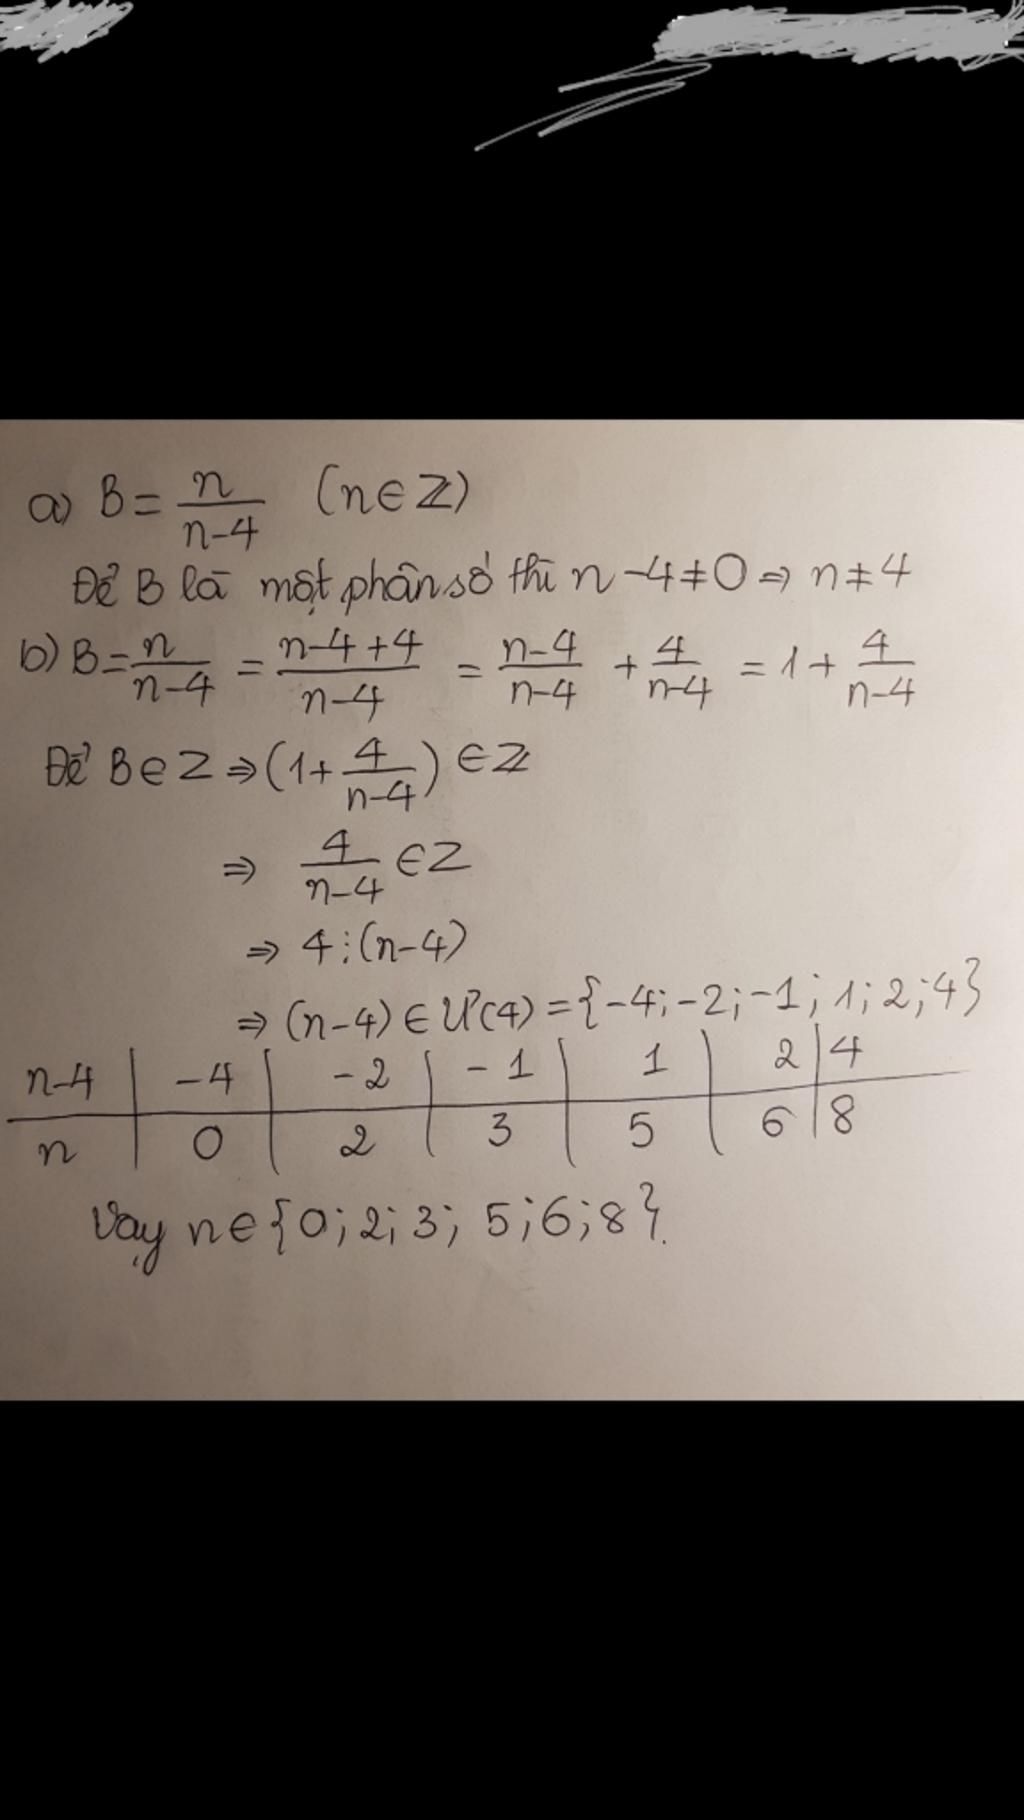 a) B = n/(n-4) (n∈Z)
Để B là một phân số thì n-4≠0 ⇒ n≠4
b) B = n/(n-4) = (n-4+4)/(n-4) = (n-4)/(n-4) + 4/(n-4) = 1 + 4/(n-4)
Để B∈Z ⇒ (1 + 4/(n-4)) ∈Z
⇒ 4/(n-4) ∈Z
⇒ 4⋮(n-4)
⇒ (n-4) ∈ Ư(4) = {-4; -2; -1; 1; 2; 4}
n-4 | -4 | -2 | -1 | 1 | 2 | 4
n | 0 | 2 | 3 | 5 | 6 | 8
Vậy n∈{0; 2; 3; 5; 6; 8}.